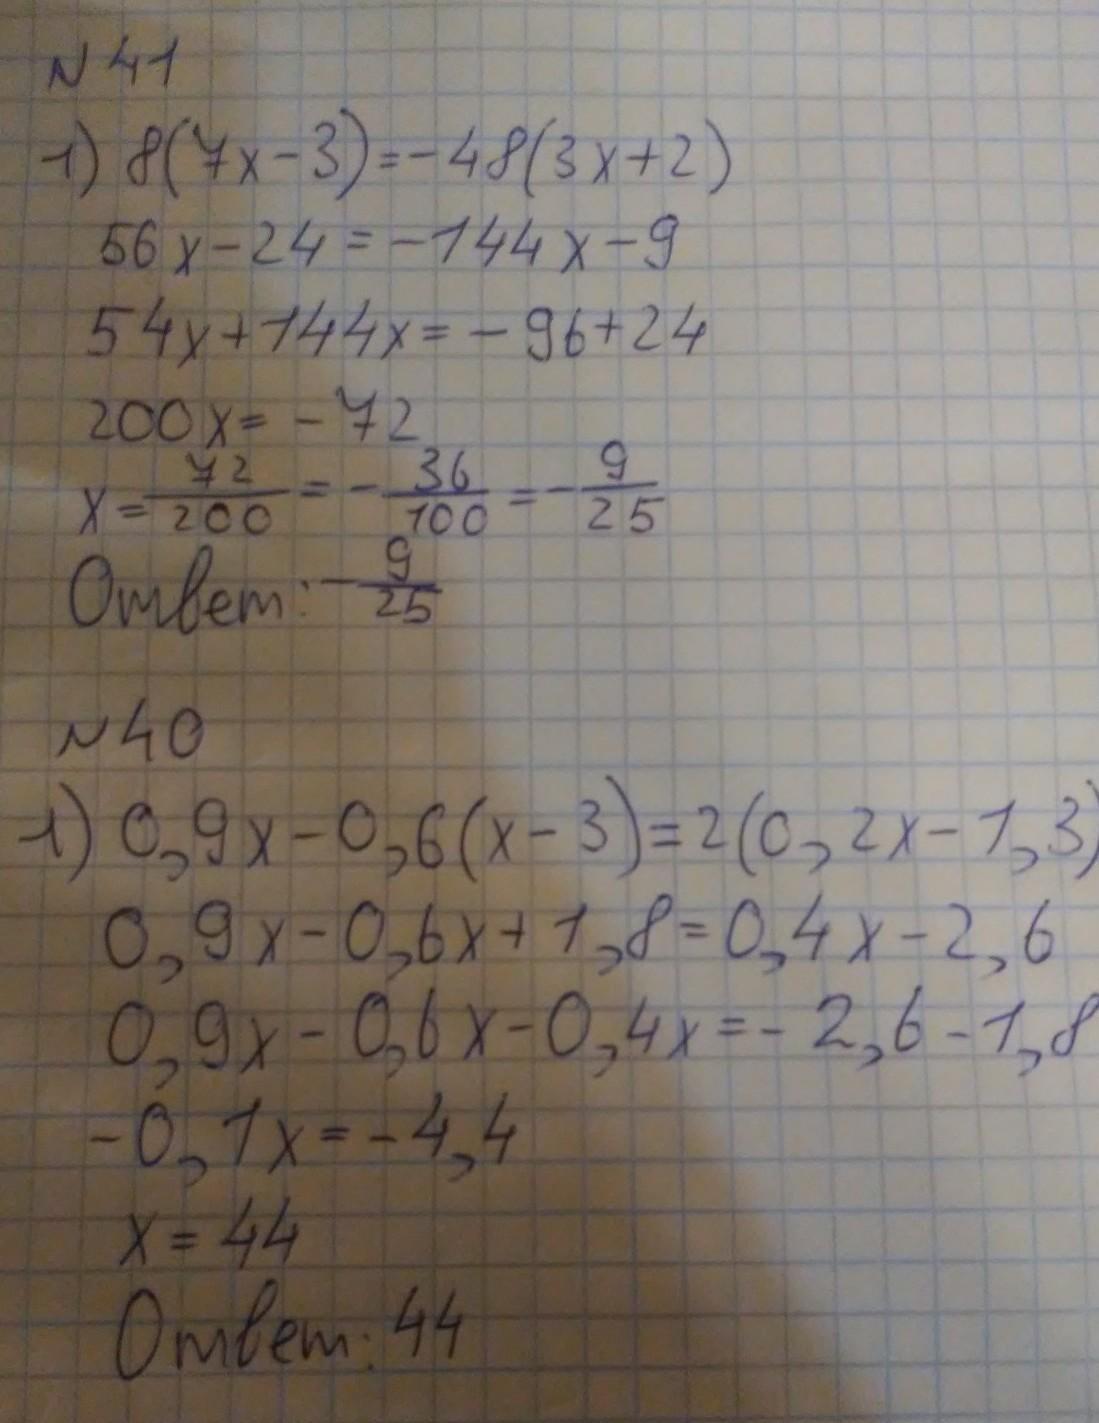 N 41
1) 8(7x-3)=-48(3x+2)
56x-24=-144x-9
54x+144x=-96+24
200x=-72
x=72/200=-36/100=-9/25
Ответ: -9/25
N 40
1) 0,9x-0,6(x-3)=2(0,2x-1,3)
0,9x-0,6x+1,8=0,4x-2,6
0,9x-0,6x-0,4x=-2,6-1,8
-0,1x=-4,4
x=44
Ответ: 44